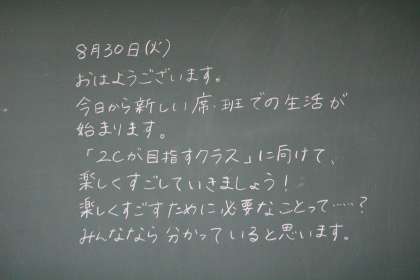 8月30日(火)
おはようございます。
今日から新しい席・班での生活が
始まります。
「2Cが目指すクラス」に向けて、
楽しくすごしていきましょう!
楽しくすごすために必要なことって……?
みんななら分かっていると思います。